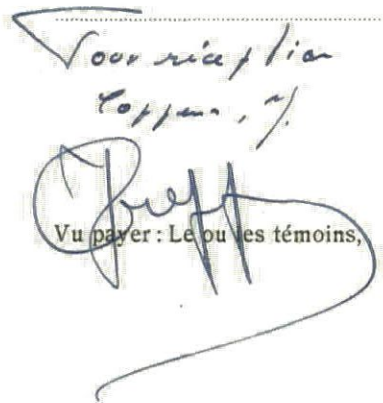 Pour réception
Coppens, J.
Vu payer : Le ou les témoins,